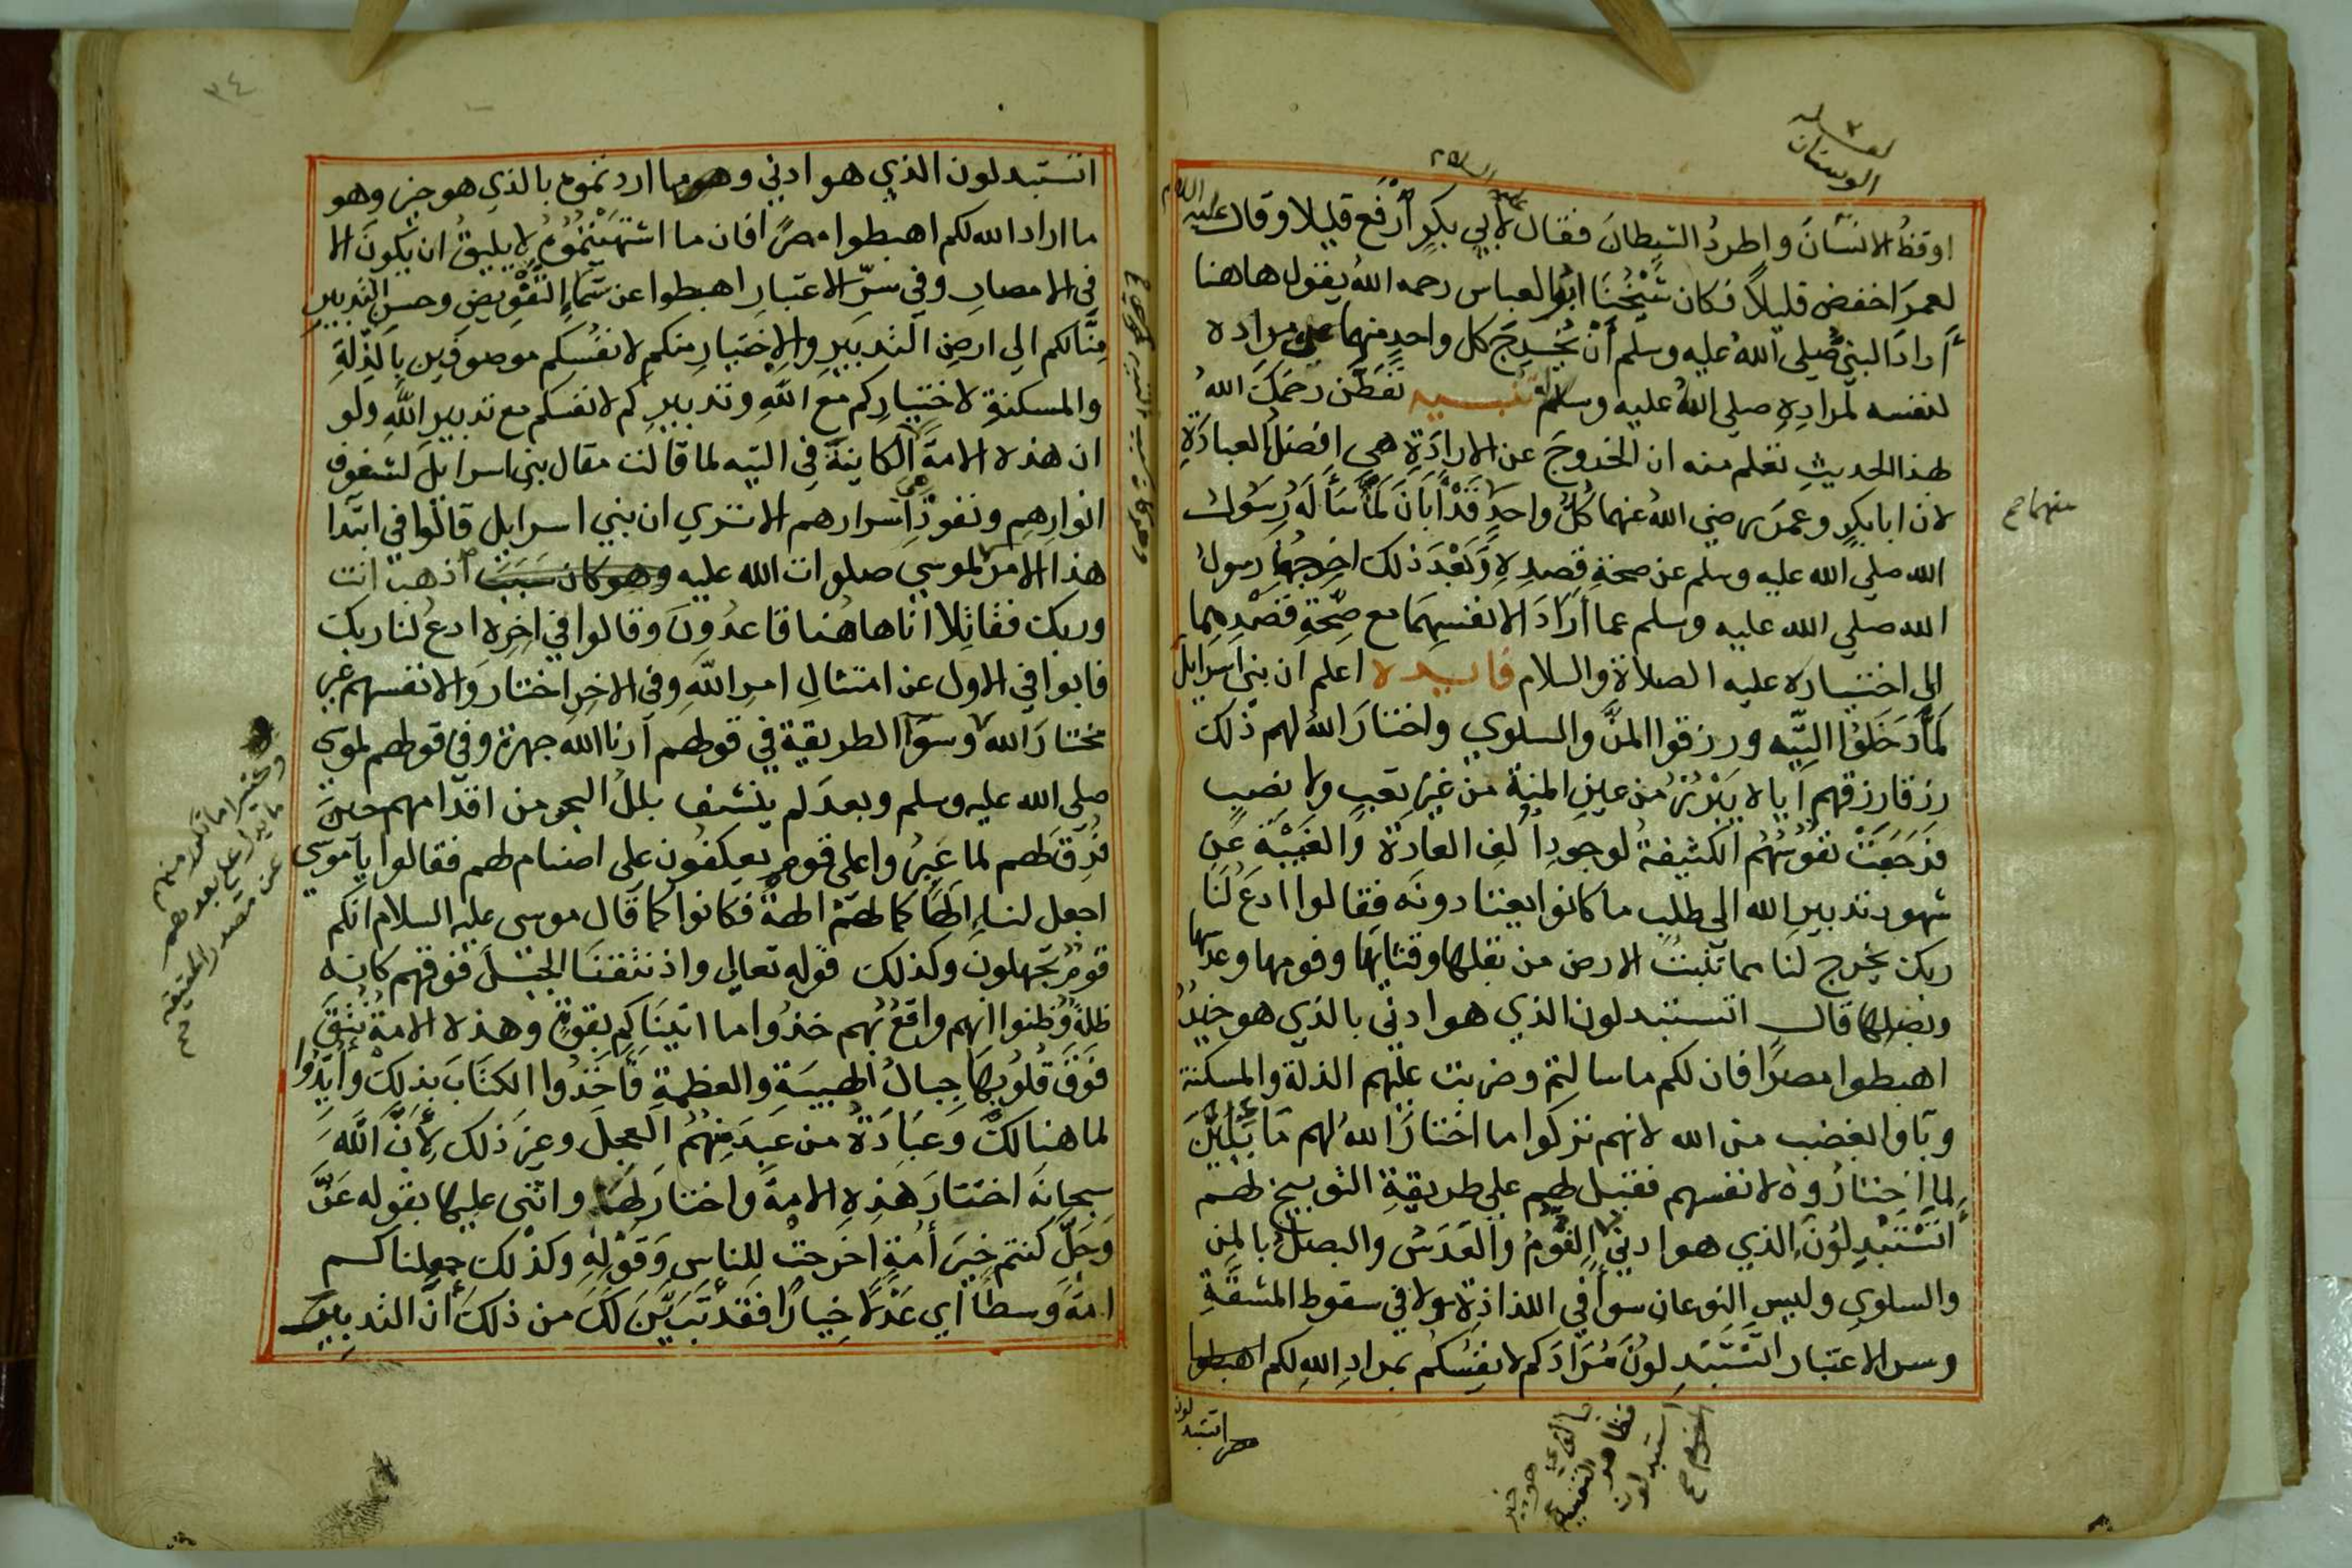 اوقظ الانسان واطرد الشيطان فقال لابي بكر ارفع قليلا وقال عليه السلام
لعمر اخفض قليلا فكان شيخنا ابو العباس رحمه الله يقول هاهنا
اراد النبي صلى الله عليه وسلم ان يخرج كل واحد منهما عن مراده
لنفسه لمراده صلى الله عليه وسلم تنبيه تفطن رحمك الله
لهذا الحديث تعلم منه ان الخروج عن الارادة هي افضل العبادة
لان ابا بكر وعمر رضي الله عنهما كل واحد قد ابان لما سأله رسول
الله صلى الله عليه وسلم عن صحة قصده وبعد ذلك اخرجهما رسول
الله صلى الله عليه وسلم عما ارادا لانفسهما مع صحة قصدهما
الى اختياره عليه الصلاة والسلام فايدة اعلم ان بني اسرايل
لما دخلوا التيه ورزقوا المن والسلوي واختار الله لهم ذلك
رزقا رزقهم اياه يبرز من عين المنة من غير تعب ولا نصب
فرجعت نفوسهم الكثيفة لوجود الف العادة والغيبة عن
شهود تدبير الله الى طلب ما كانوا يعتادونه فقالوا ادع لنا
ربك يخرج لنا مما تنبت الارض من بقلها وقثايها وفومها وعدسها
وبصلها قال اتستبدلون الذي هو ادني بالذي هو خير
اهبطوا مصرا فان لكم ما سالتم وضربت عليهم الذلة والمسكنة
وباوا بغضب من الله لانهم تركوا ما اختار الله لهم مما يليق
لما اختاروه لانفسهم فقيل لهم على طريقة التوبيخ لهم
اتستبدلون الذي هو ادني الفوم والعدس والبصل بالمن
والسلوي وليس النوعان سوا في اللذاذة ولا في سقوط المشقة
وسر الاعتبار اتستبدلون مرادكم لانفسكم بمراد الله لكم اهبطوا
اتستبدلون
منهما صح
اتستبدلون الذي هو ادني وهو ما اردتموه بالذي هو خير وهو
ما اراد الله لكم اهبطوا مصرا فان ما اشتهيتموه لا يليق ان يكون الا
في الامصار وفي سر الاعتبار اهبطوا عن سماء التفويض وحسن التدبير
منا لكم الى ارض التدبير والاختيار منكم لانفسكم موصوفين بالذلة
والمسكنة لاختياركم مع الله وتدبيركم لانفسكم مع تدبير الله ولو
ان هذه الامة الكاينة في التيه لما قالت مقال بني اسرايل لشفوف
انوارهم ونفوذ اسرارهم الا تري ان بني اسرايل قالوا في ابتدا
هذا الامر لموسي صلوات الله عليه وهو كان سبب اذهب انت
وربك فقاتلا انا هاهنا قاعدون وقالوا في اخره ادع لنا ربك
فابوا في الاول عن امتثال امر الله وفي الاخر اختاروا لانفسهم غير
مختار الله وسوا الطريقة في قولهم ارنا الله جهرة وفي قولهم لموسي
صلى الله عليه وسلم وبعد لم ينشف بلل البحر من اقدامهم حين
فرق لهم لما عبروا على قوم يعكفون على اصنام لهم فقالوا يا موسي
اجعل لنا الها كما لهم الهة فكانوا كما قال موسى عليه السلام انكم
قوم تجهلون وكذلك قوله تعالي واذ نتقنا الجبل فوقهم كانه
ظلة وظنوا انه واقع بهم خذوا ما اتيناكم بقوة وهذه الامة نتق
فوق قلوبها جبال الهيبة والعظمة فاخذوا الكتاب بذلك وايدوا
لما هنالك وعبادة من عبد منهم العجل وغير ذلك لان الله
سبحانه اختار هذه الامة واختار لها واثنى عليها بقوله عز
وجل كنتم خير امة اخرجت للناس وقوله وكذلك جعلناكم
امة وسطا اي عدلا خيارا فقد تبين لك من ذلك ان التدبير
٣٤